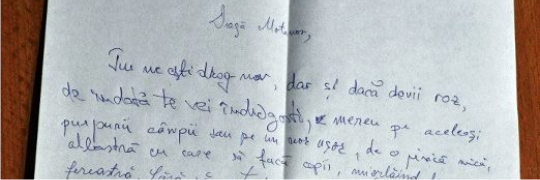 Dragă Motanov,
Tu nu ești dkog-nov, dar și dacă devii roz,
de îndată te vei îndrăgosti, e mereu pe aceleași
purpurii câmpii sau pe un nor ușor, de o pisică mică,
albastră cu care să facă copii, miorlăind
fereastră